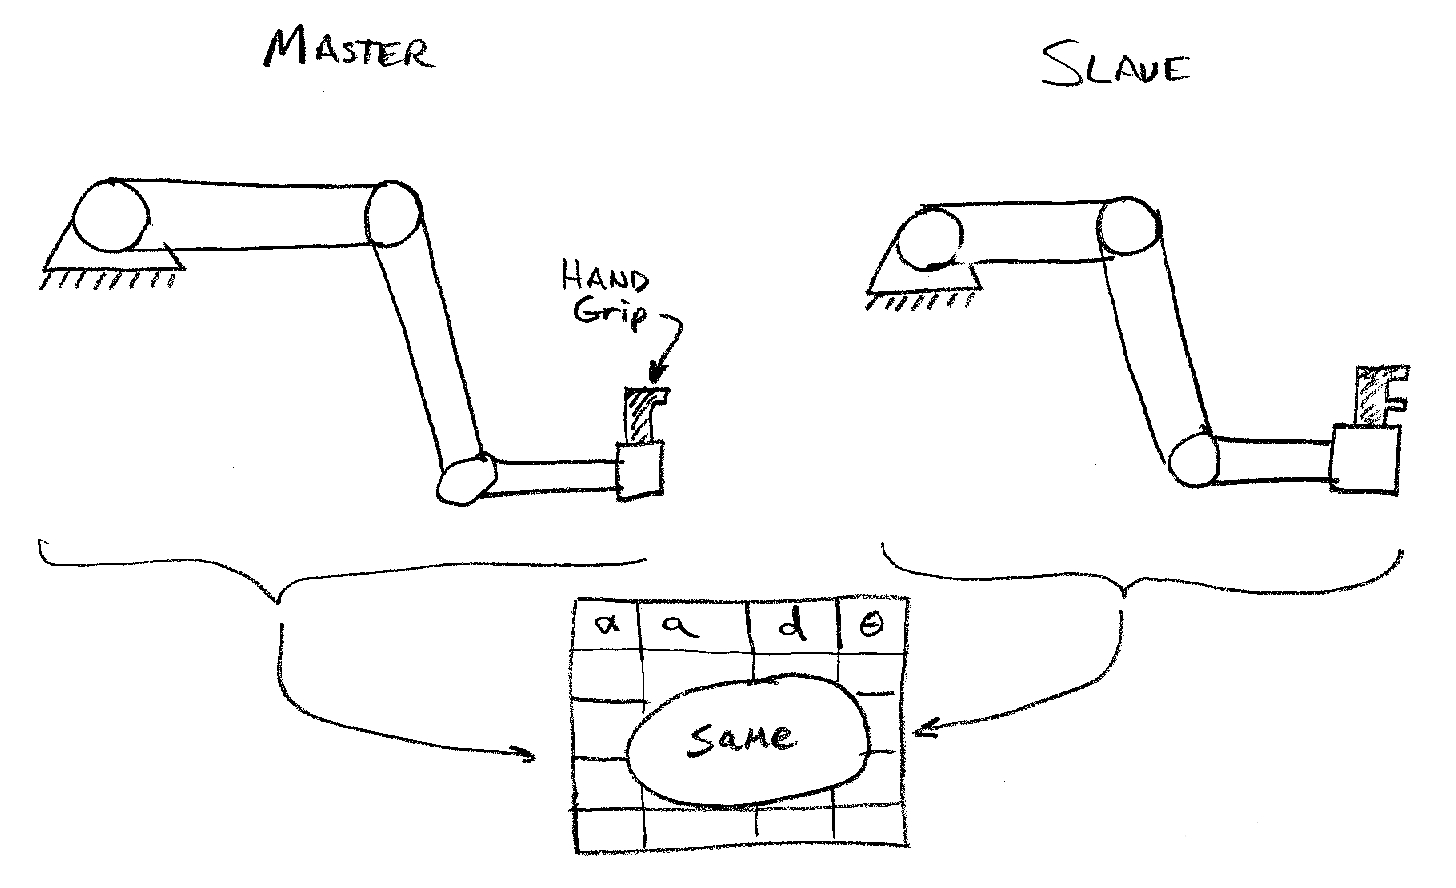 MASTER
SLAVE
HAND
Grip
α a d θ
SAME